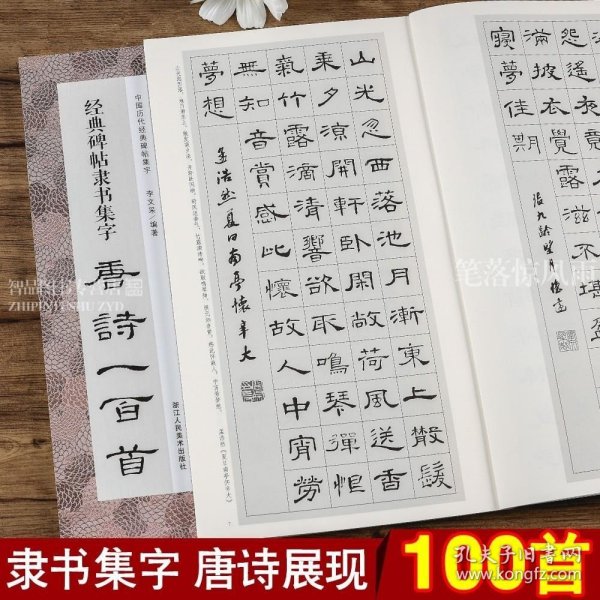 中国历代经典碑帖集字
李文采/编著
经典碑帖隶书集字
唐詩一百首
浙江人民美术出版社
山光忽西落池月漸東上散髮
乘夕涼開軒臥閑敞荷風送香
氣竹露滴清響欲取鳴琴彈恨
無知音賞感此懷故人中宵勞
夢想
孟浩然夏日南亭懷辛大
怨遙
滿披衣覺露滋不堪盈
寢夢佳期
張九齡望月懷遠
笔落惊风雨
ZHIPINTUSHU ZYD
隶书集字 唐诗展现 100首
孔夫子旧书网
www.kongfz.com